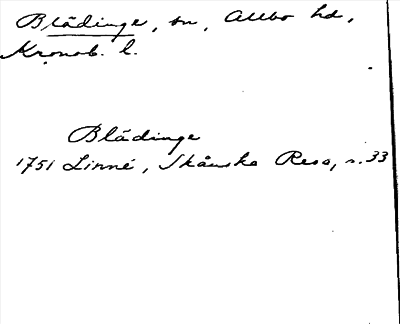 Blädinge, sn, Allbo hd,
Kronob. l.
Blädinge
1751 Linné, Skånska Resa, s. 33